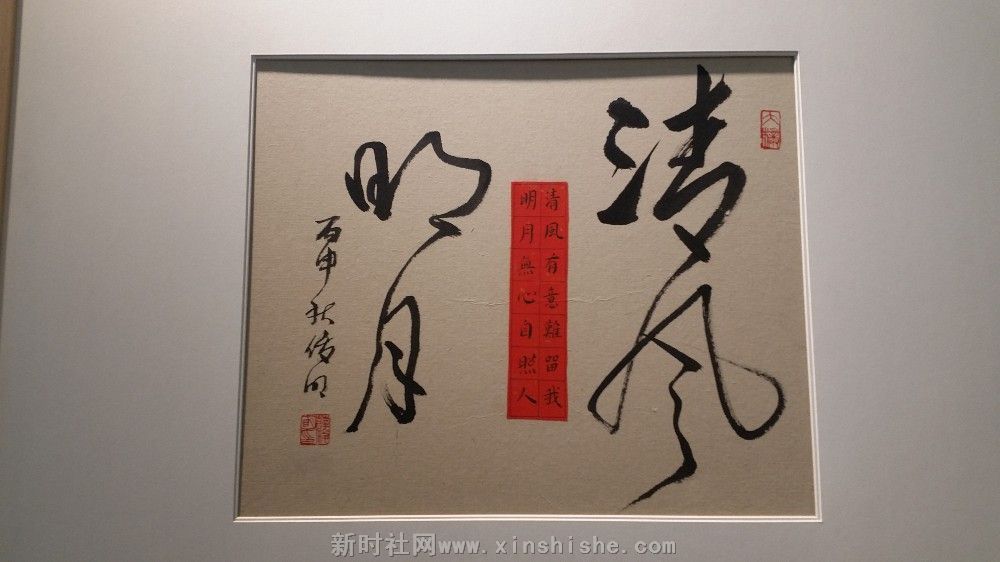 清风
清風有意難留我
明月無心自照人
明月
丙申秋俊明
新时社网www.xinshishe.com